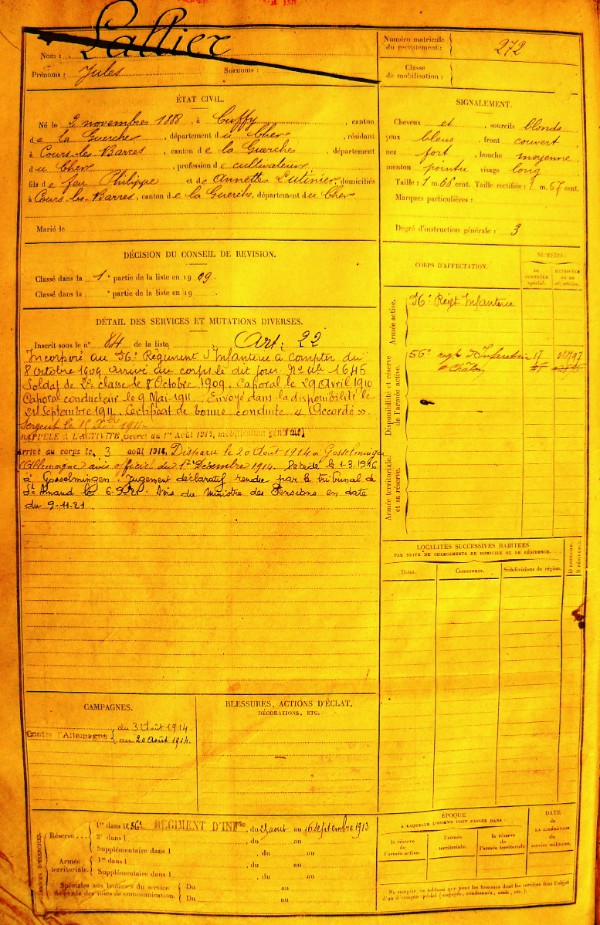 Nom : Lallier
Prénoms : Jules Surnoms :
Numéro matricule du recrutement : 272
Classe de mobilisation :
ÉTAT CIVIL.
Né le 2 novembre 1888, à Cuffy, canton
de la Guerche, département du Cher, résidant
à Cours-les-Barres, canton de la Guerche, département
du Cher, profession de cultivateur
fils de feu Philippe et de Annette Lutinier, domiciliés
à Cours-les-Barres, canton de la Guerche, département du Cher
Marié le
SIGNALEMENT.
Cheveux et sourcils blonds
yeux bleus, front couvert
nez fort, bouche moyenne
menton pointu visage long
Taille : 1 m. cent. Taille rectifiée : 1 m. 67 cent.
Marques particulières :
Degré d'instruction générale : 3
DÉCISION DU CONSEIL DE REVISION.
Classé dans la 1e partie de la liste en 1909.
Classé dans la e partie de la liste en 19
CORPS D'AFFECTATION.
NUMÉROS
Armée active.
56e Régt Infanterie
Disponibilité et réserve de l'armée active.
56e regt d'Infanterie
Armée territoriale et sa réserve.
DÉTAIL DES SERVICES ET MUTATIONS DIVERSES.
Inscrit sous le n° 84 de la liste Art. 22
Incorporé au 56e Régiment d'Infanterie à compter du
8 octobre 1909. Arrivé au corps le dit jour. No 1645
Soldat de 2e classe le 8 Octobre 1909. Caporal le 29 Avril 1910
Caporal conducteur le 9 Mai 1911. Envoyé dans la disponibilité le
24 Septembre 1911. Certificat de bonne conduite « Accordé ».
Sergent le 1914
RAPPELÉ A L'ACTIVITÉ (Décret du 1er Août 1914, mobilisation générale)
Arrivé au corps le 3 août 1914. Disparu le 20 Août 1914 à Gosselmingen
(Allemagne) avis officiel du 1er Décembre 1914. Décédé
à Gosselmingen. Jugement déclaratif rendu par le tribunal de
St Amand le Avis du Ministre des Pensions en date
du 9-11-21
LOCALITÉS SUCCESSIVES HABITÉES
PAR SUITE DE CHANGEMENTS DE DOMICILE OU DE RÉSIDENCE.
Dates. Communes. Subdivisions de région.
CAMPAGNES.
Contre l'Allemagne du 3 Août 1914
au 20 Août 1914.
BLESSURES, ACTIONS D'ÉCLAT,
DÉCORATIONS, ETC.
Réserve 1re dans le 56e RÉGIMENT D'INFrie, du 25 août au 16 septembre 1913
2e dans l , du au
Supplémentaire dans l , du au
Armée territoriale. 1re dans l , du au
Supplémentaire dans l , du au
Spéciales aux hommes du service Du au
des voies de communication. Du au
ÉPOQUE
A LAQUELLE L'HOMME DOIT PASSER DANS :
la réserve de l'armée active. l'armée territoriale. la réserve de l'armée territoriale.
DATE
DE LA LIBÉRATION du service militaire.